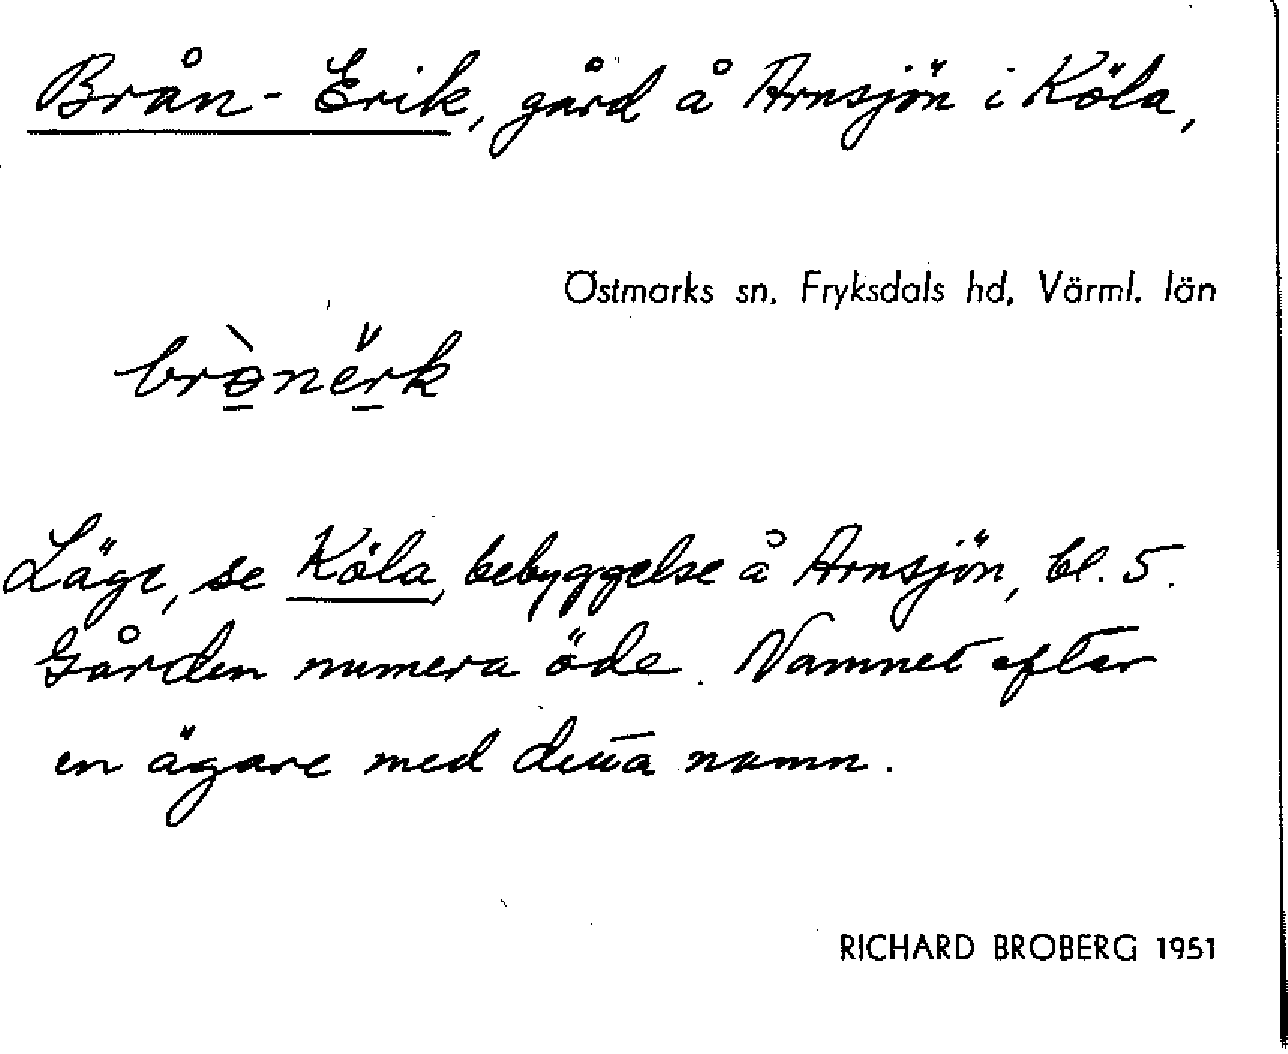 Brån-Erik, gård å Arnsjön i Köla,
Östmarks sn, Fryksdals hd, Värml. län
brònërk
Läge, se Köla, bebyggelse å Arnsjön, bl. 5.
Gården numera öde. Namnet efter
en ägare med detta namn.
RICHARD BROBERG 1951